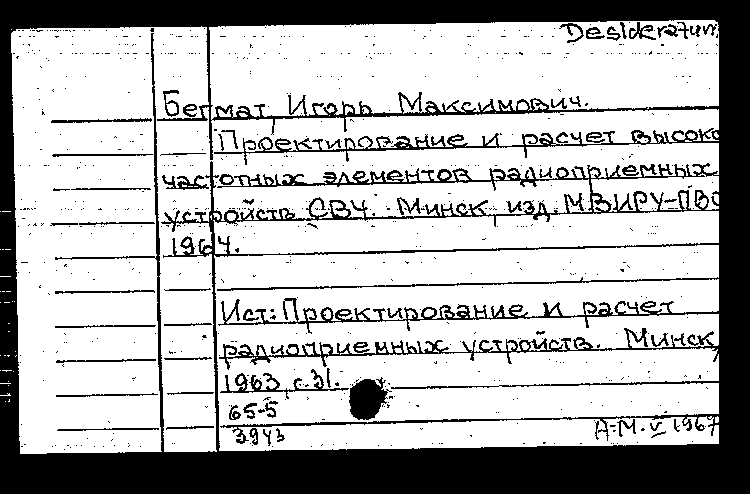 Desideratum
Бегмат, Игорь Максимович.
Проектирование и расчет высоко
частотных элементов радиоприемных
устройств СВЧ. Минск, изд. МВИРУ-ПВО
1964.
Ист: Проектирование и расчет
радиоприемных устройств. Минск,
1963, с.31.
65-5
3943
А-М. V 1967